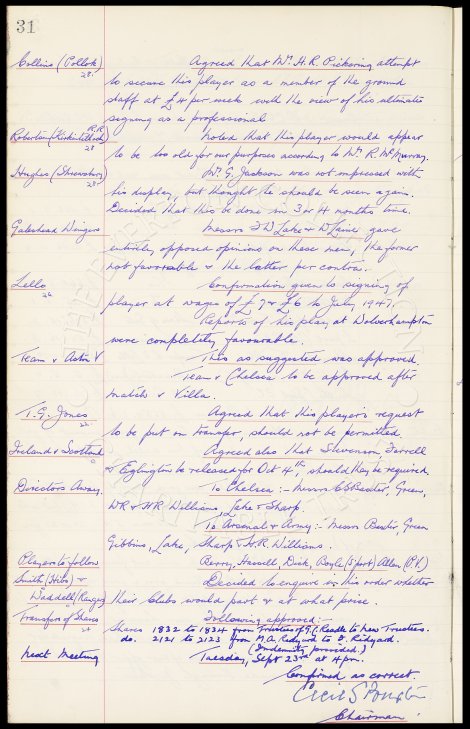 31
Collins (Pollok) 28. Agreed that Mr. H.R. Pickering attempt
to secure this player as a member of the ground
staff at £4 per week with the view of his ultimate
signing as a professional
Robertson (Kirkintilloch R.R.) 28 Noted that this player would appear
to be too old for our purposes according to Mr. R. McMurray.
Hughes (Shrewsbury) 28. Mr. G. Jackson was not impressed with
his display, but thought he should be seen again.
Decided that this be done in 3 or 4 months time.
Gateshead Wingers Messrs Lake & gave
entirely opposed opinions on these men, the former
not favorable & the latter per contra.
Lello 26 Confirmation given to signing of
player at wages of £7 & £6 to July 1947.
Reports of his play at Wolverhampton
were completely favourable.
Team v Aston V This as suggested was approved
Team v Chelsea to be approved after
match v Villa.
T.G. Jones 22. Agreed that this player's request
to be put on transfer, should not be permitted.
Ireland v Scotland Agreed also that Stevenson, Farrell
& Eglington be released for Oct 4th, should they be required.
Directors Away. To Chelsea:- Messrs Baxter, Green,
WR & HR Williams, Lake & Sharp.
To Arsenal & Army:- Messrs Baxter, Green
Gibbins, Lake, Sharp & H.R. Williams.
Players to follow Berry, Hassell, Dick, Boyle (S'port) Allen (P.V.)
Smith (Hibs) & Decided to enquire in this order whether
Waddell (Rangers) their Clubs would part & at what price.
Transfers of Shares 24 Following approved:-
Shares 1832 to 1834 from Trustees of T.C. Reade to new Trustees.
do. 2121 to 2123 from M.A. Ridyard to F. Ridyard.
(Indemnity provided.)
Next Meeting Tuesday, Sept 23rd at 4pm.
Confirmed as correct.
Cecil S Baxter
Chairman.